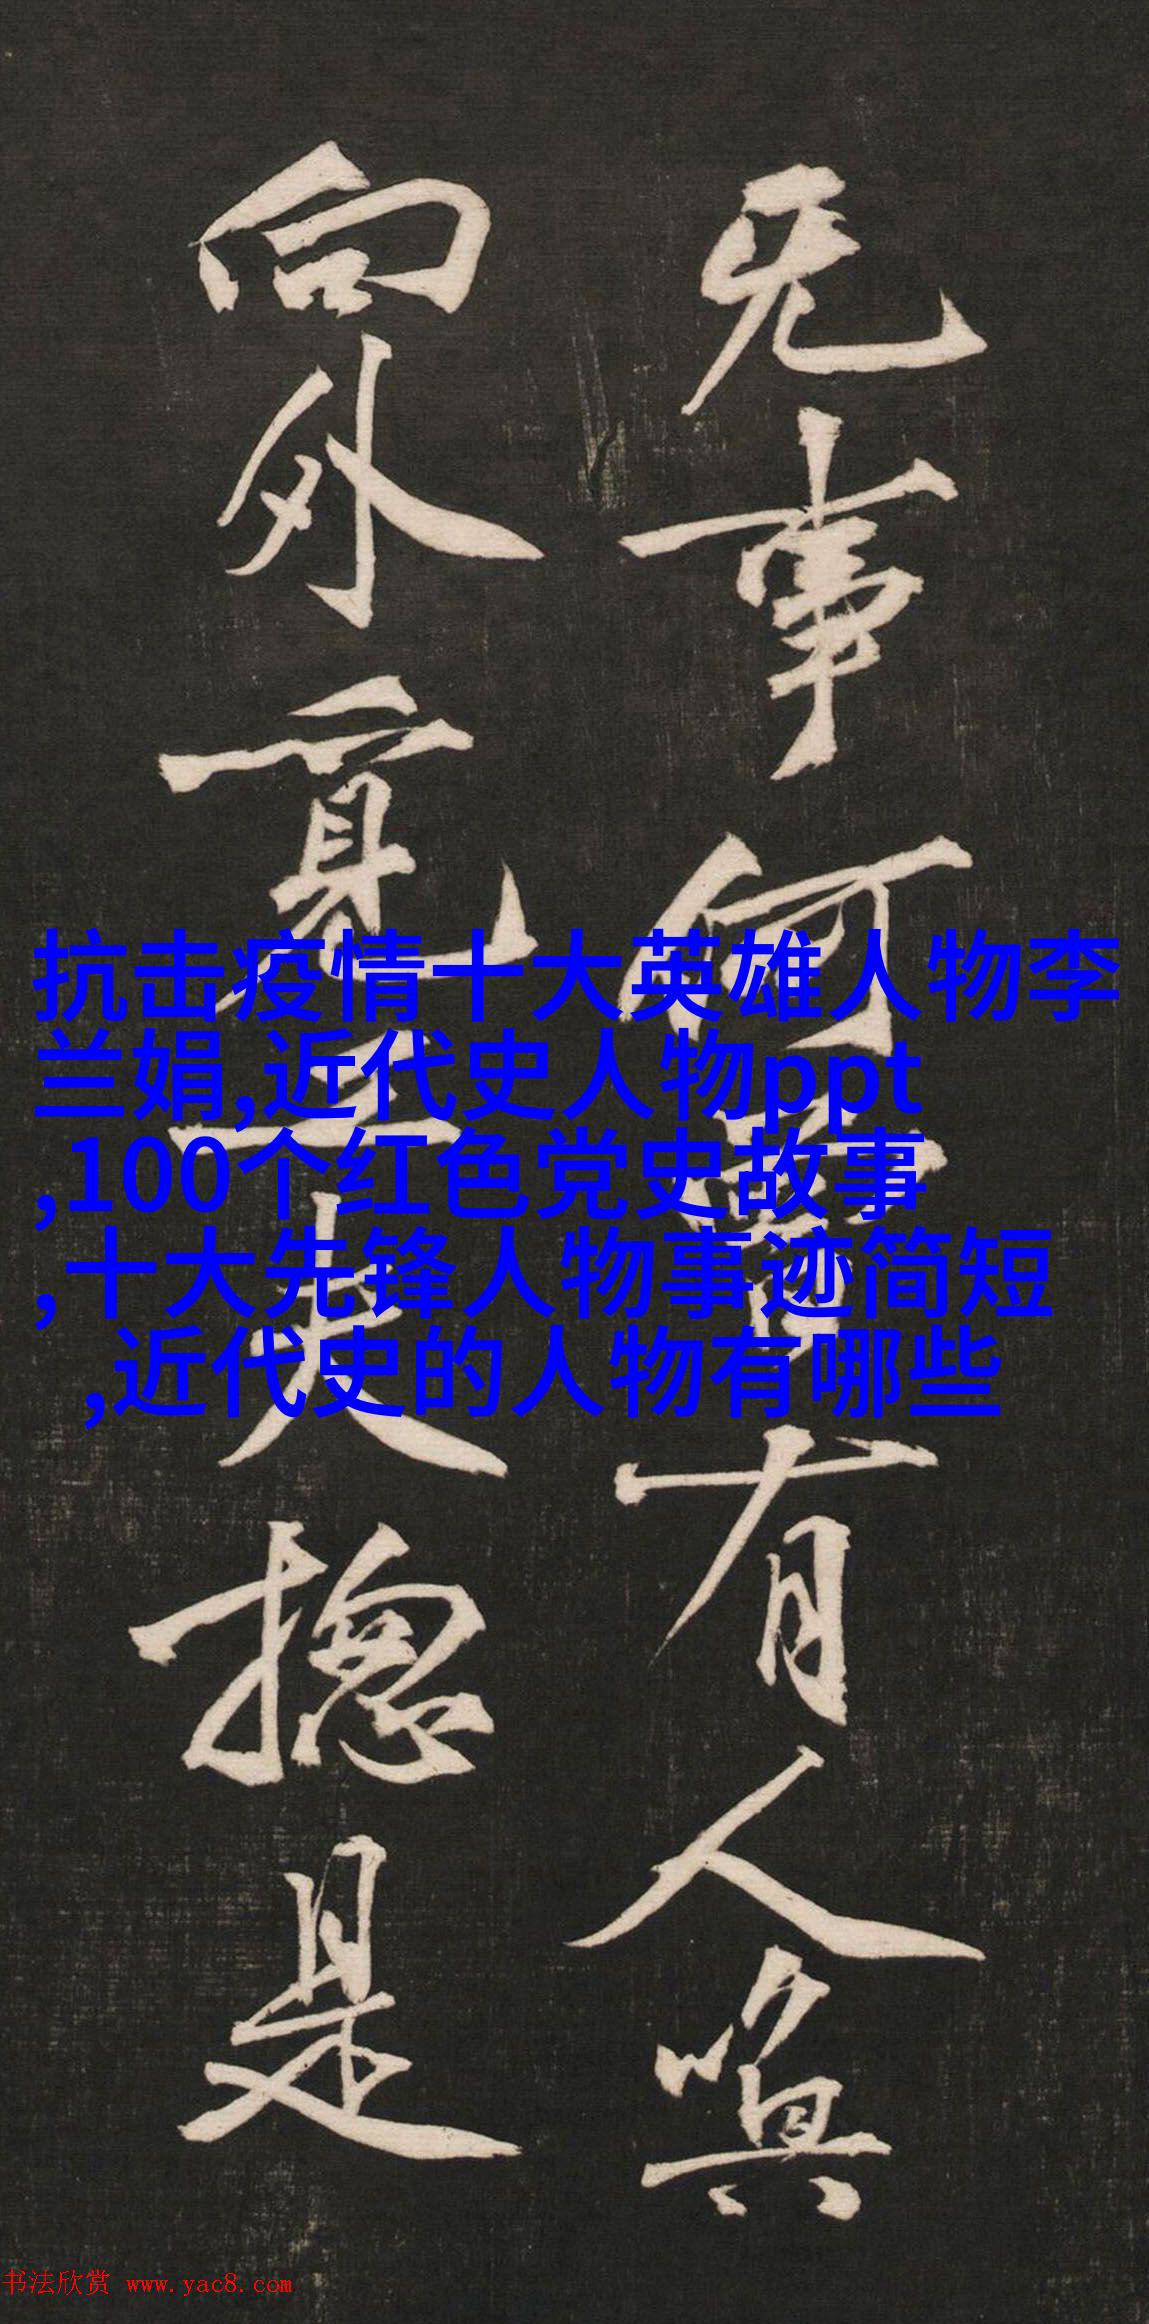 无事何有人
向外覓工夫揔是
抗击疫情十大英雄人物李
兰娟,近代史人物ppt
,100个红色党史故事
,十大先锋人物事迹简短
,近代史的人物有哪些
书法欣赏 www.yac8.com